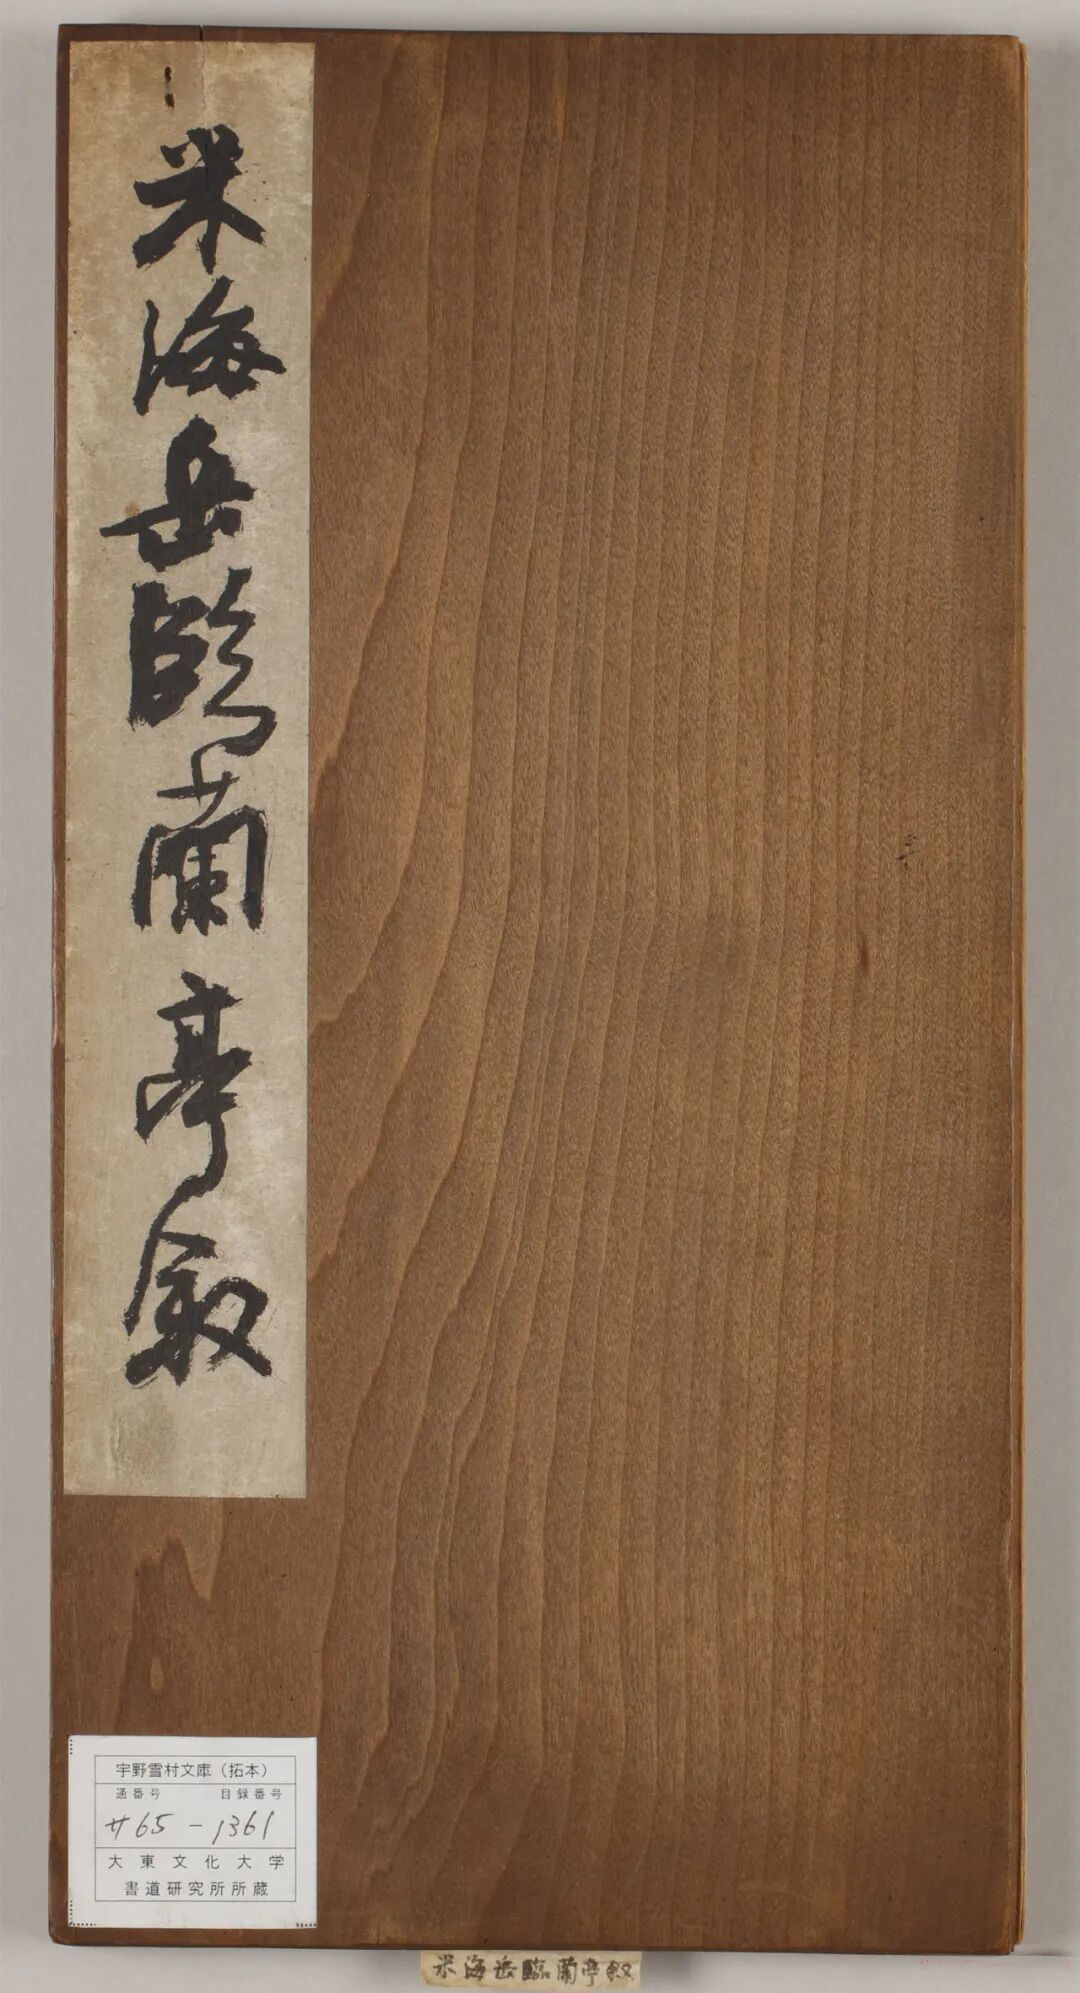 米海岳臨蘭亭叙
宇野雪村文庫（拓本）
通番号 目録番号
サ65-1361
大東文化大学
書道研究所所蔵
米海岳臨蘭亭叙